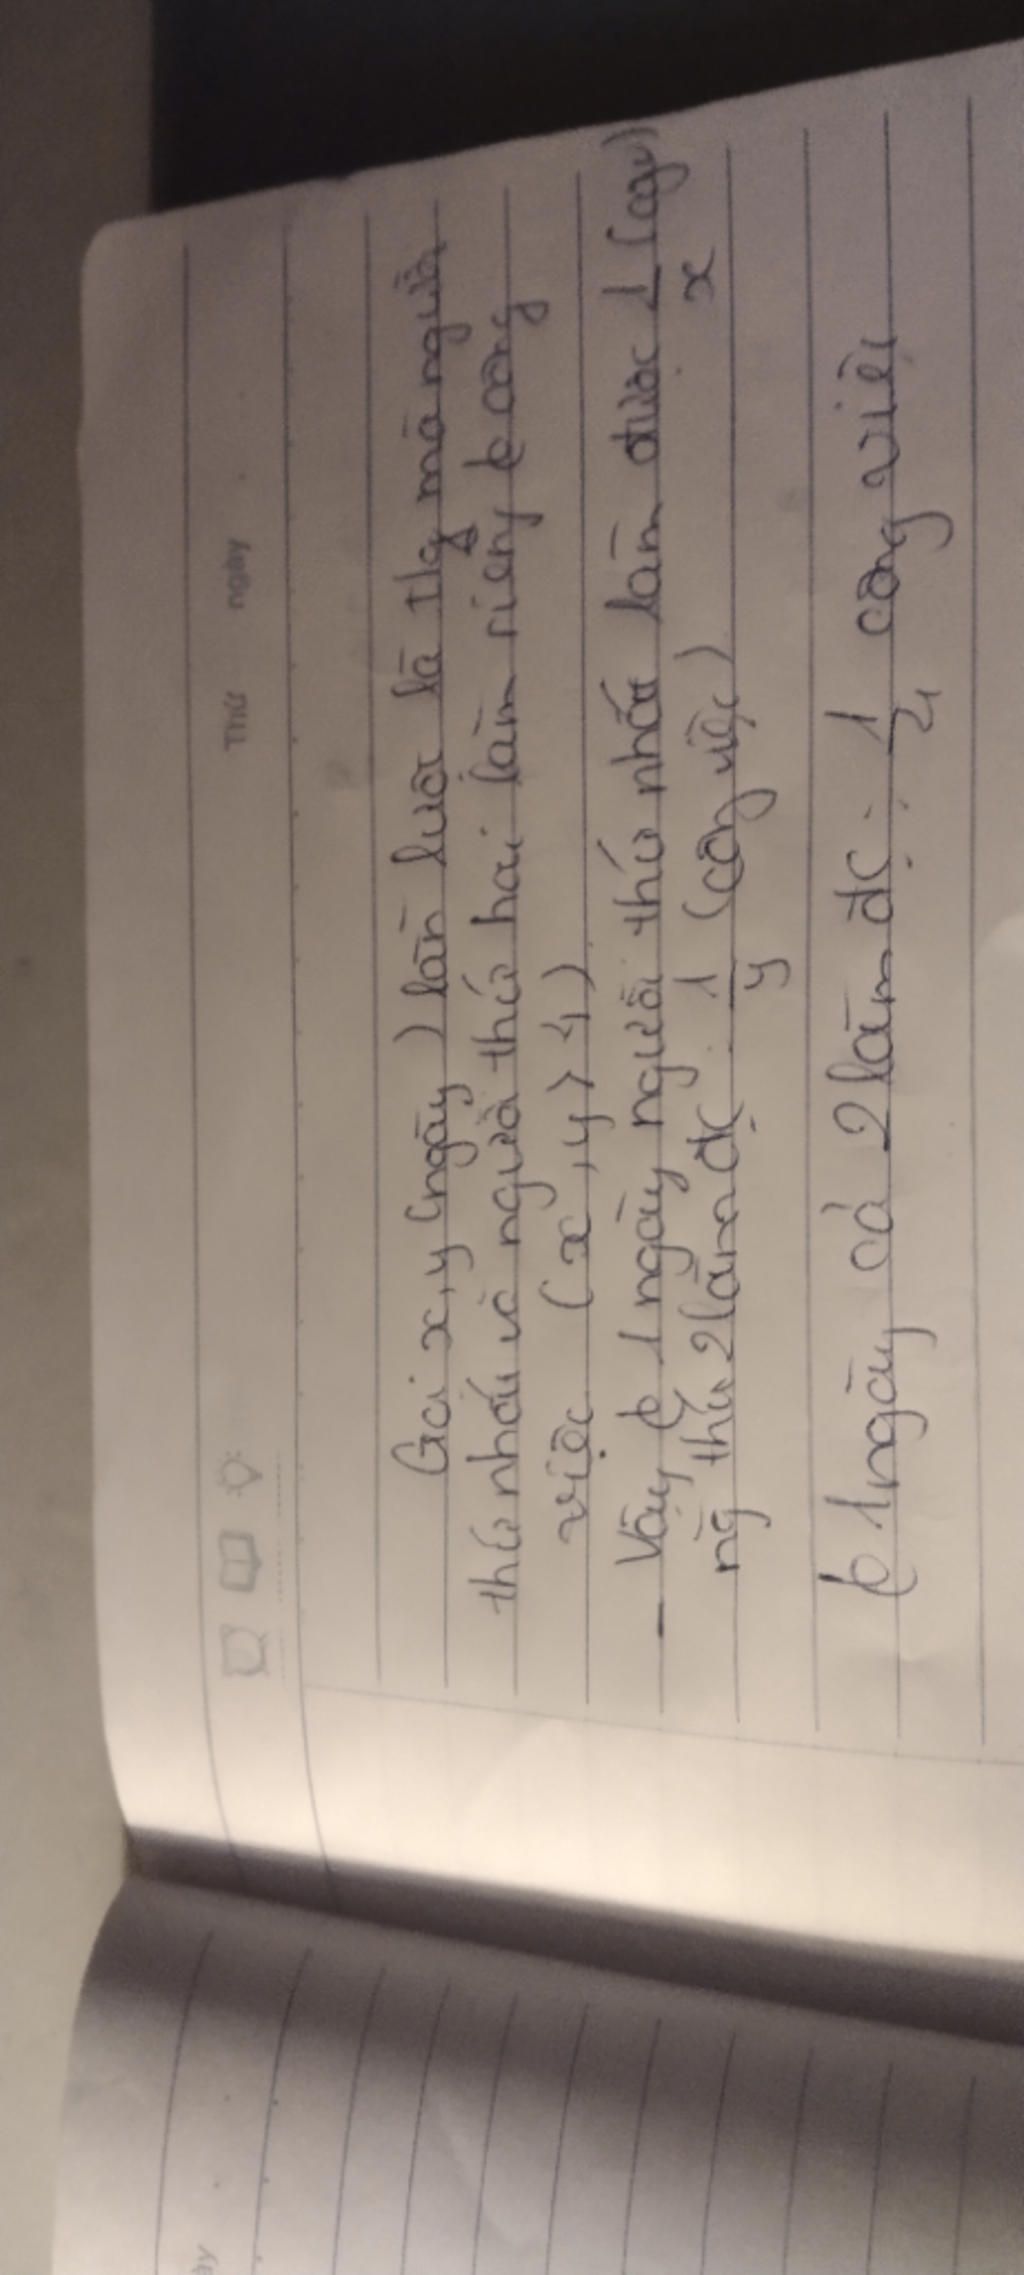 Thứ ngày
Gọi x, y (ngày) lần lượt là tg mà người
thứ nhất và người thứ hai làm riêng công
việc (x, y > 4)
- Vậy 1 ngày người thứ nhất làm được 1/x (cgv)
ng thứ 2 làm đc: 1/y (công việc)
1 ngày cả 2 làm đc: 1/4 công việc
ày